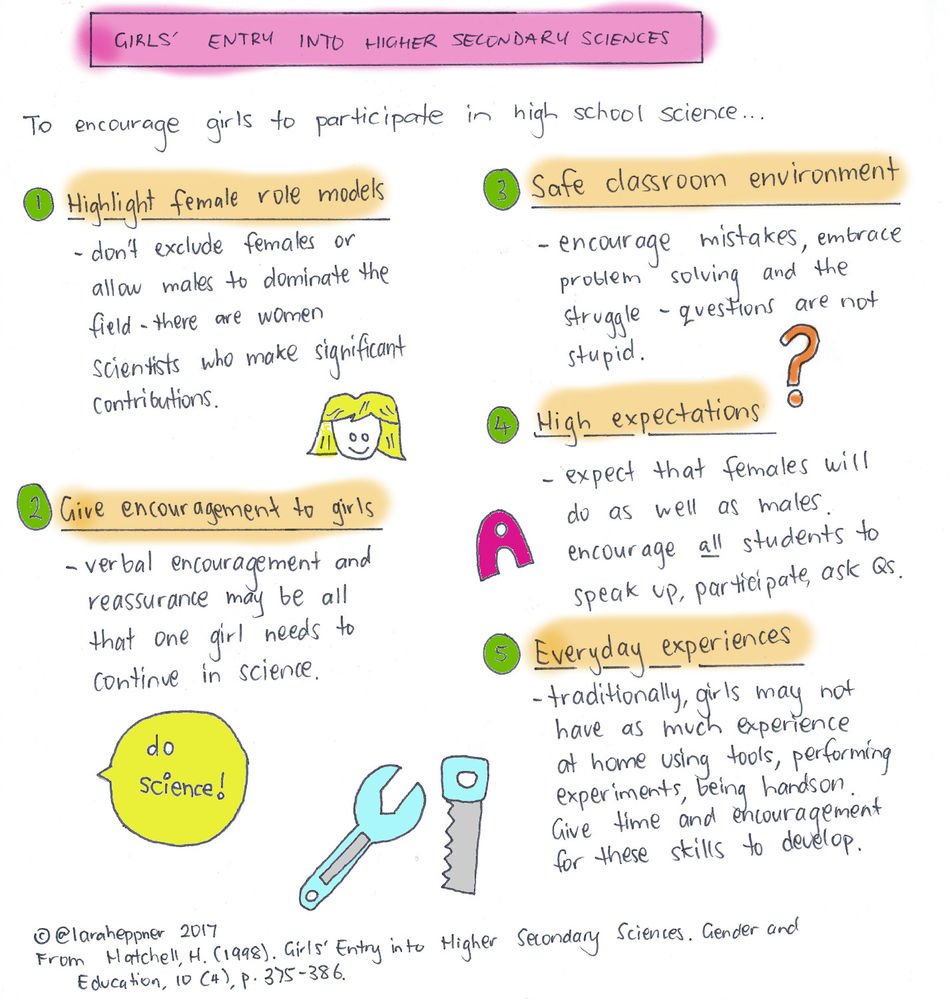 GIRLS' ENTRY INTO HIGHER SECONDARY SCIENCES
To encourage girls to participate in high school science...
1 Highlight female role models
- don't exclude females or
allow males to dominate the
field - there are women
scientists who make significant
contributions.
2 Give encouragement to girls
- verbal encouragement and
reassurance may be all
that one girl needs to
continue in science.
do
science!
3 Safe classroom environment
- encourage mistakes, embrace
problem solving and the
struggle - questions are not
stupid.
?
4 High expectations
- expect that females will
do as well as males.
encourage all students to
speak up, participate, ask Qs.
A
5 Everyday experiences
- traditionally, girls may not
have as much experience
at home using tools, performing
experiments, being handson.
Give time and encouragement
for these skills to develop.
© @laraheppner 2017
From Matchell, H. (1998). Girls' Entry into Higher Secondary Sciences. Gender and
Education, 10 (4), p. 375-386.